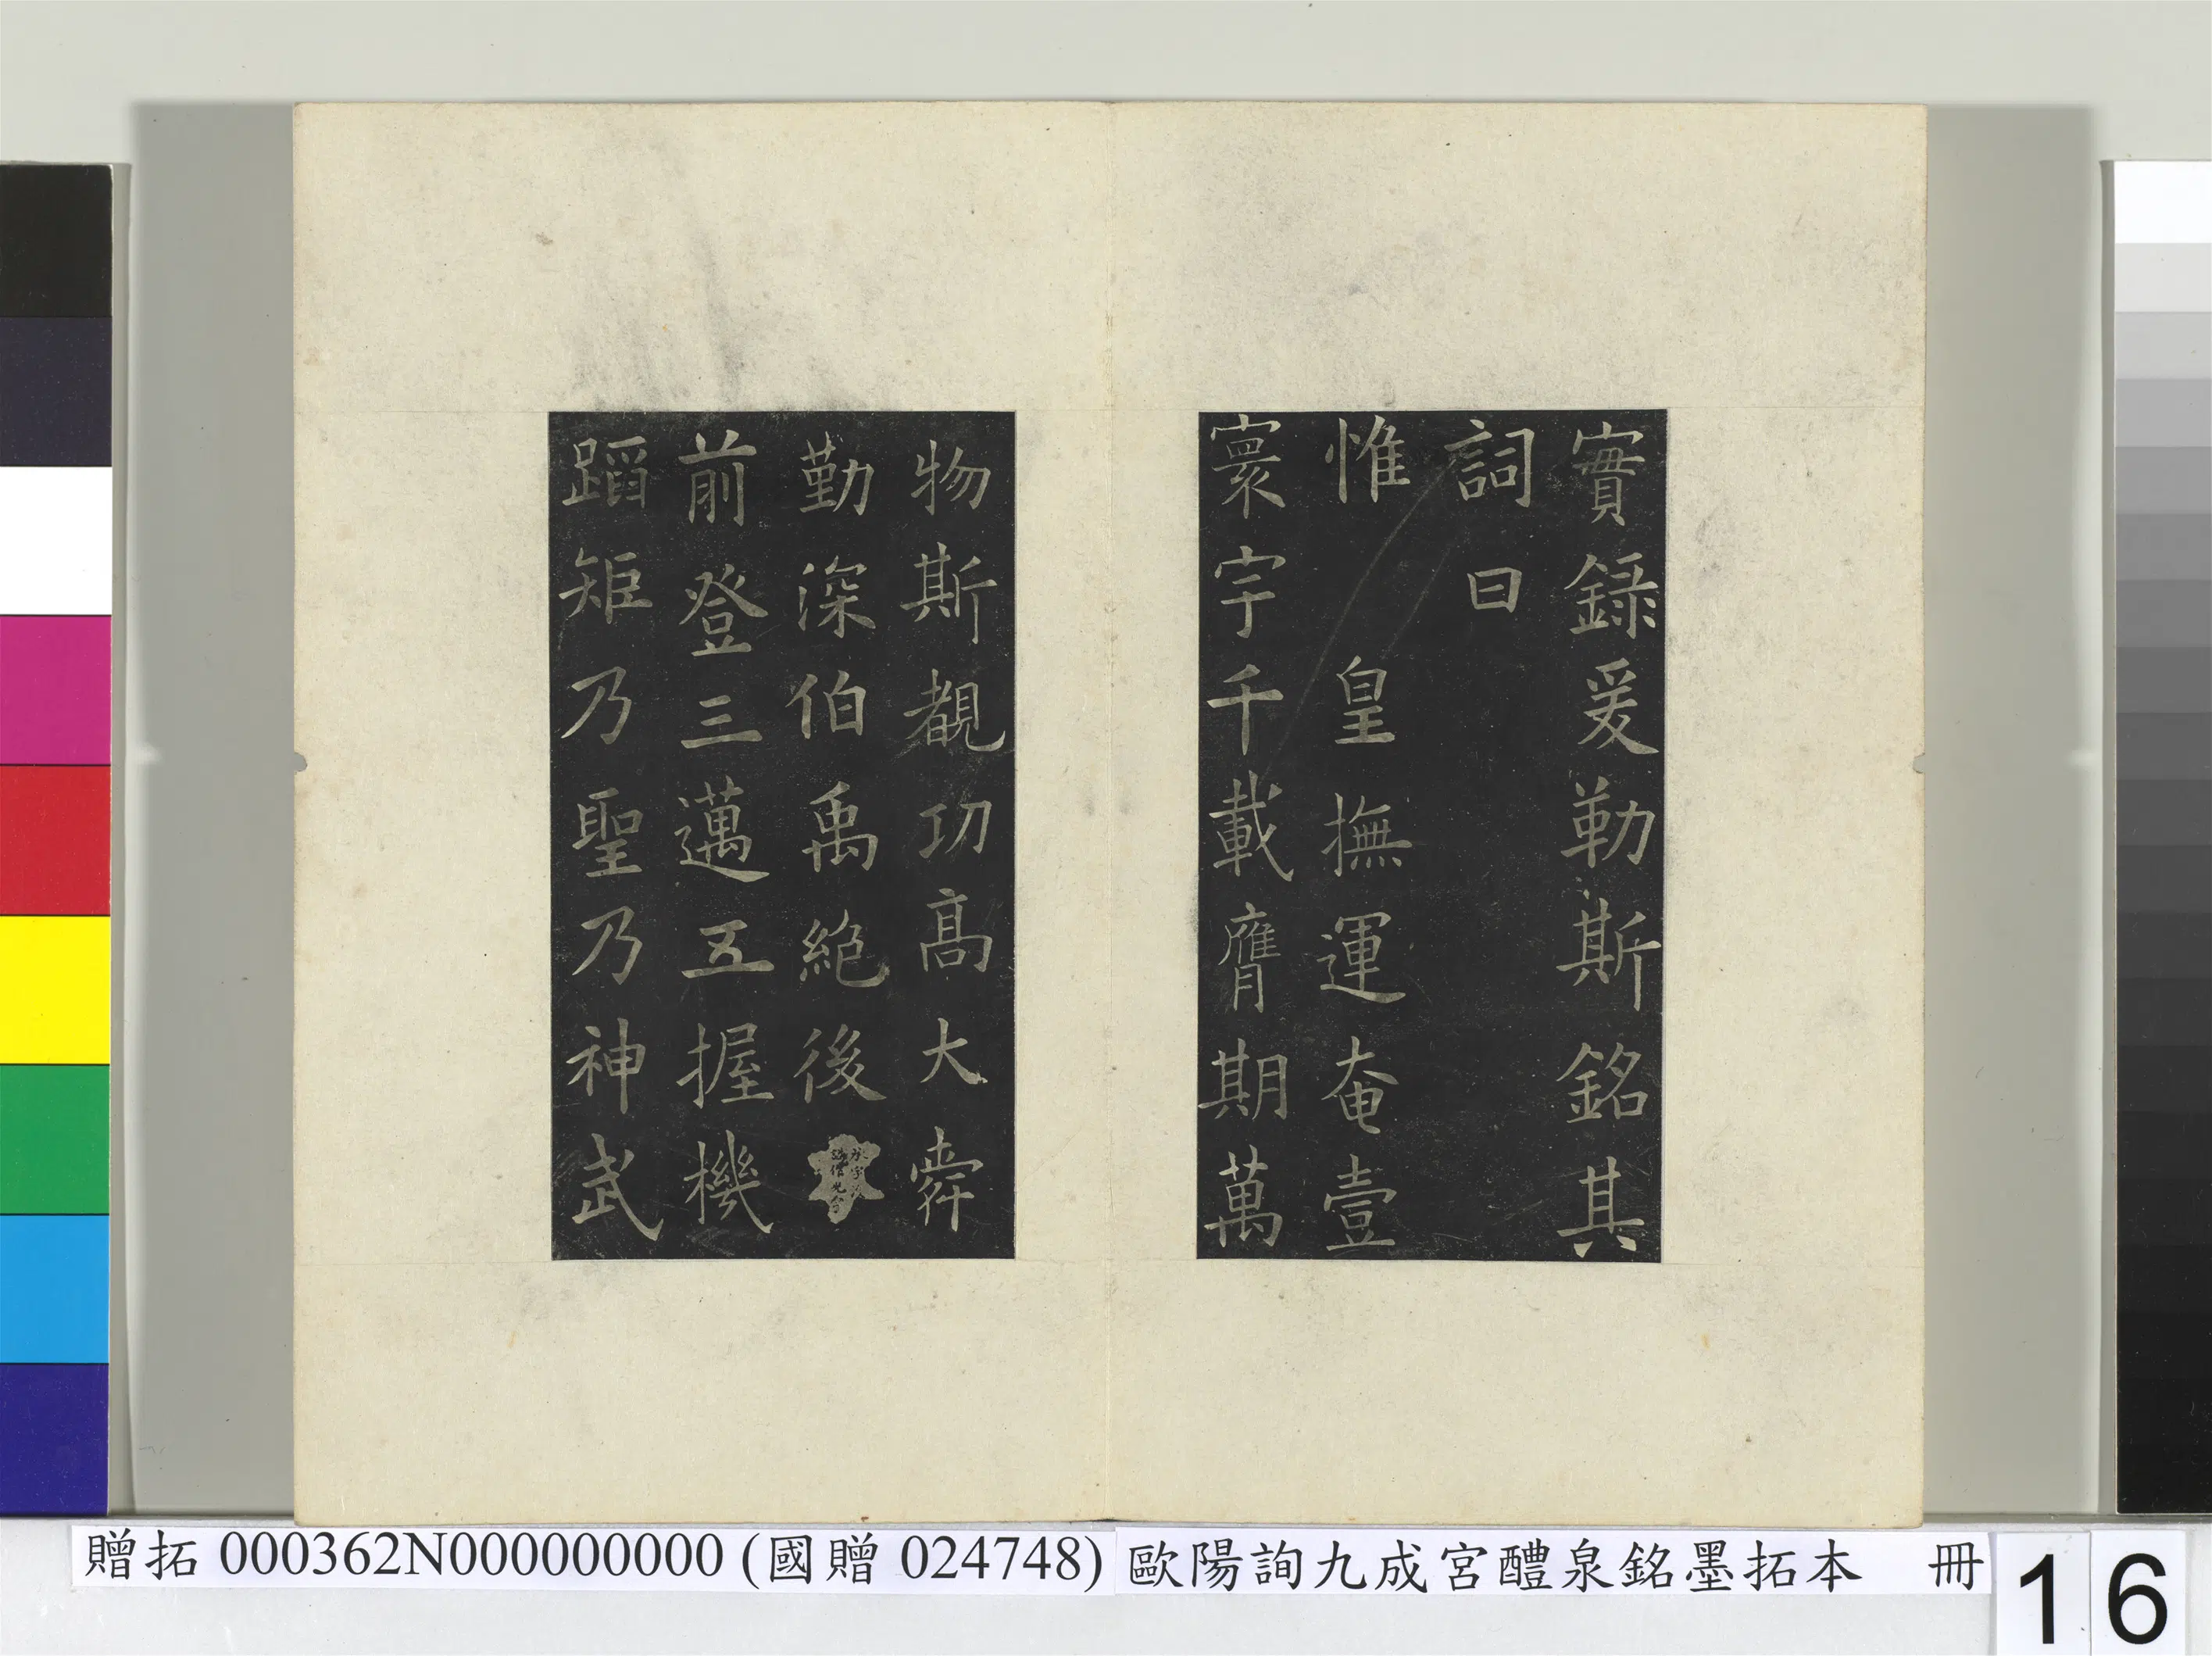 實錄爰勒斯銘其
詞曰
惟皇撫運奄壹
寰宇千載膺期萬
物斯覩功高大舜
勤深伯禹絶後
前登三邁五握機
蹈矩乃聖乃神武
贈拓 000362N000000000 (國贈 024748) 歐陽詢九成宮醴泉銘墨拓本 冊
16